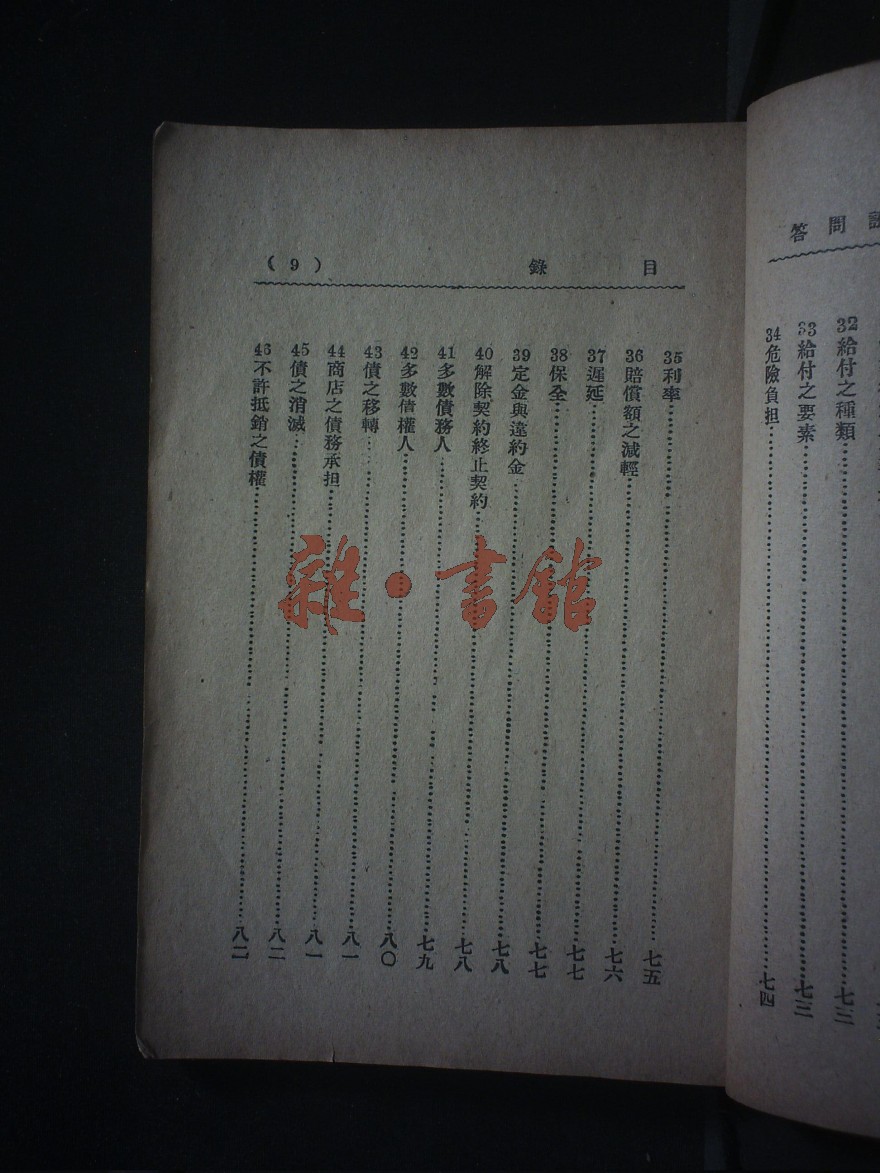 問答
32給付之種類……七三
33給付之要素……七三
34危險負担……七四
目錄 (9)
35利率……七五
36賠償額之減輕……七六
37遲延……七七
38保全……七七
39定金與違約金……七八
40解除契約終止契約……七八
41多數債務人……七九
42多數債權人……八〇
43債之移轉……八一
44商店之債務承担……八一
45債之消滅……八二
46不許抵銷之債權……八二
雜·書館